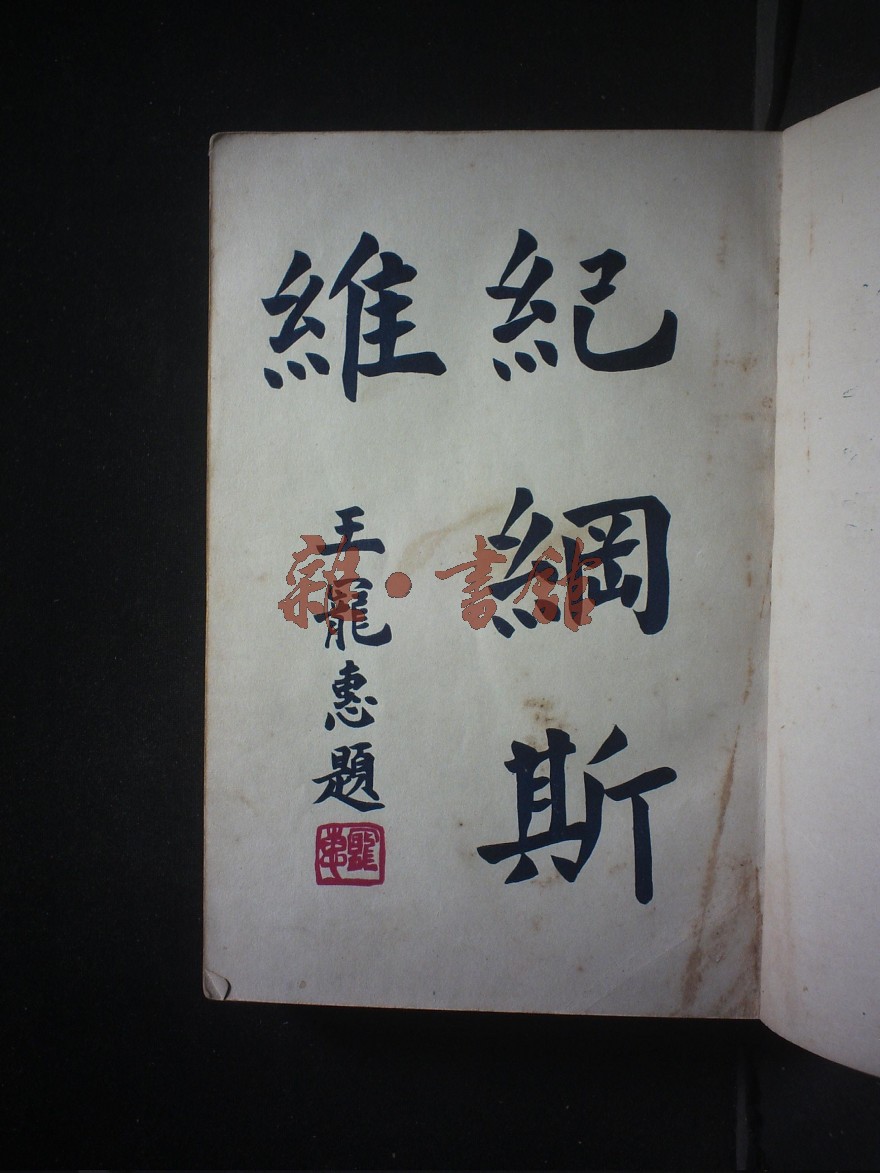 紀綱斯
維
王寵惠題
寵惠
雜·書館